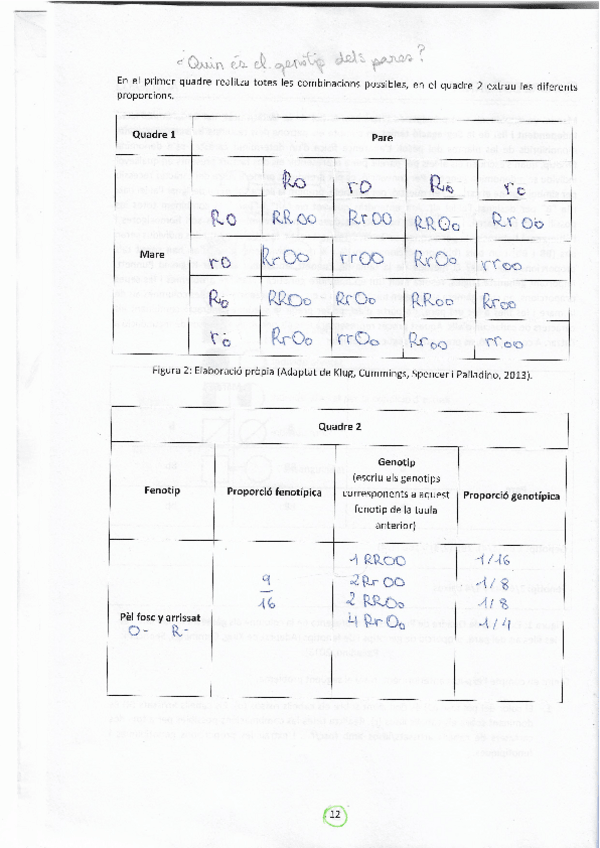 ¿Quin és el genotip dels pares?
En el primer quadre realitza totes les combinacions possibles, en el quadre 2 extrau les diferents
proporcions.
Quadre 1 Pare
RO rO Ro ro
RO RROO RrOO RROo RrOo
Mare rO RrOo rrOO RrOo rroo
Ro RROo RrOo RRoo Rroo
ro RrOo rrOo Rroo rroo
Figura 2: Elaboració pròpia (Adaptat de Klug, Cummings, Spencer i Palladino, 2013).
Quadre 2
Fenotip Proporció fenotípica Genotip (escriu els genotips corresponents a aquest fenotip de la taula anterior) Proporció genotípica
1 RROO 1/16
9/16 2 RrOO 1/8
2 RROo 1/8
Pèl fosc y arrissat 4 RrOo 1/4
O- R-
12